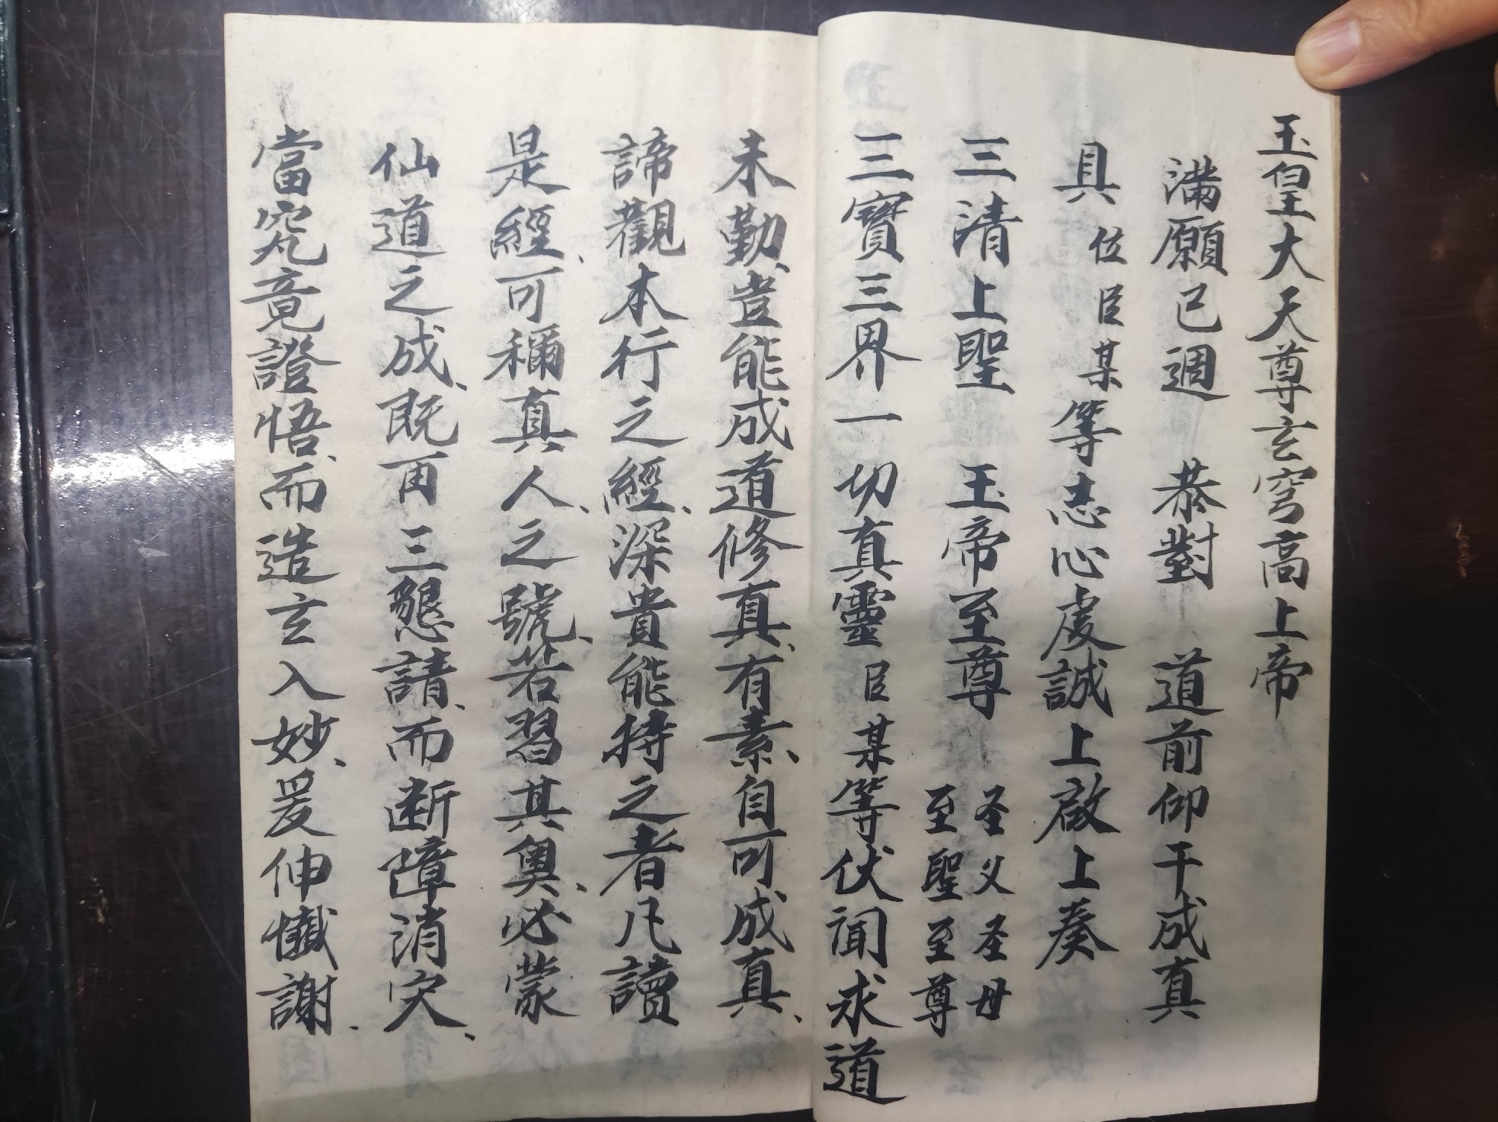 玉皇大天尊玄穹高上帝
滿願已週　恭對　道前仰干成真
具位臣某等志心虔誠上啟上奏
三清上聖　玉帝至尊　圣父圣母至聖至尊
三寶三界一切真靈臣某等伏聞求道
未勤、豈能成道修真、有素、自可成真、
諦觀本行之經、深貴能持之者凡讀
是經、可稱真人之號、若習其奧、必蒙
仙道之成、既再三懇請、而断障消灾、
當究竟證悟、而造玄入妙、爰伸懺謝、